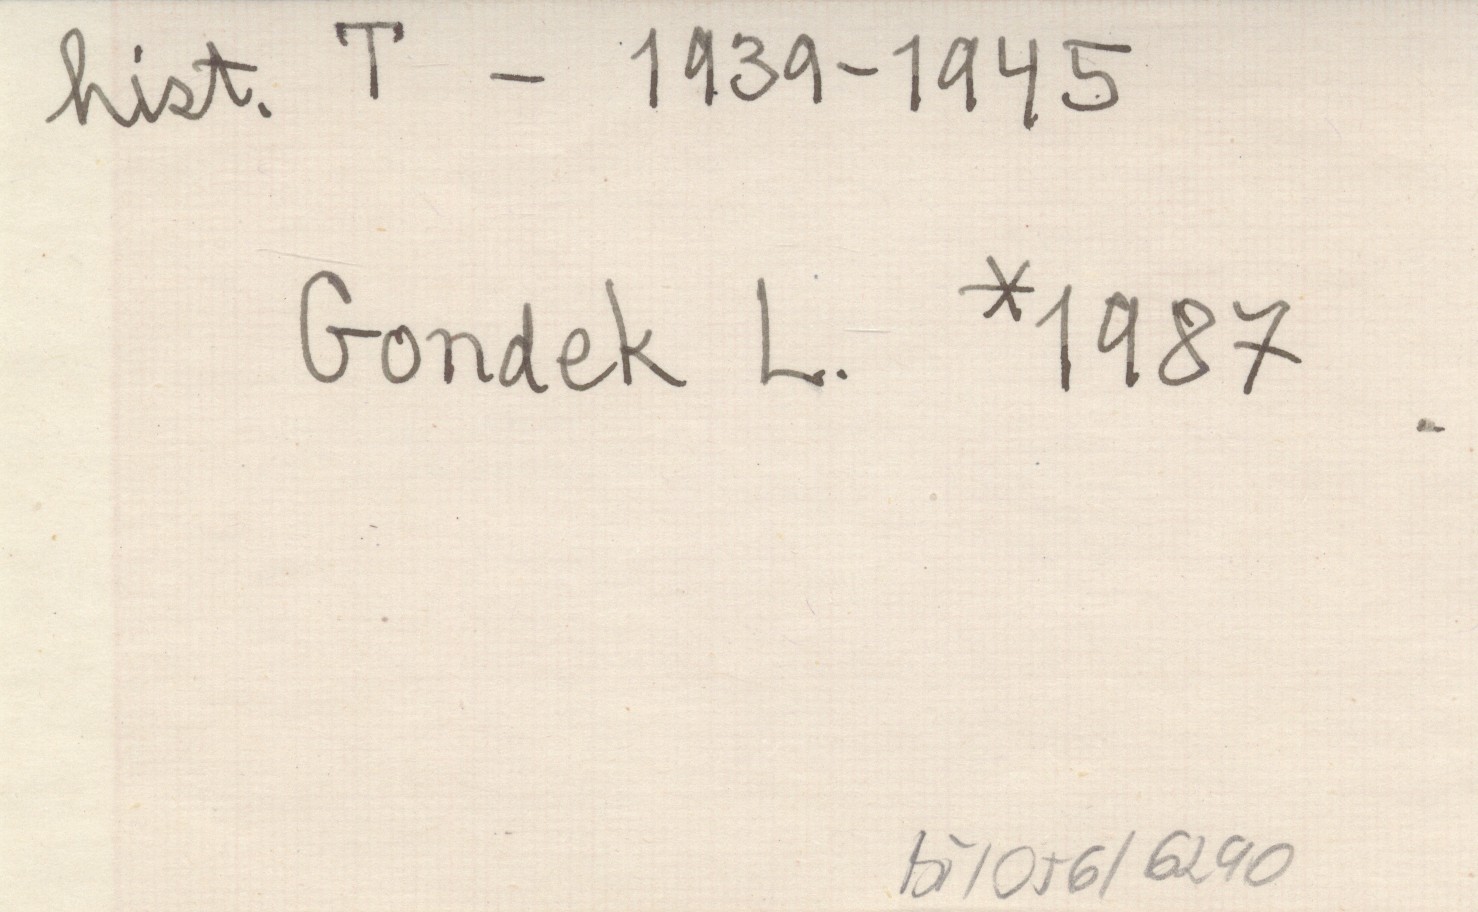 hist. T - 1939-1945
Gondek L. *1987
6290